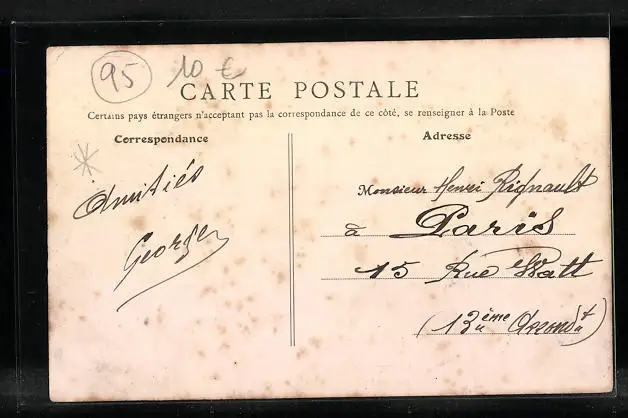 95
10 €
CARTE POSTALE
Certains pays étrangers n'acceptant pas la correspondance de ce côté, se renseigner à la Poste
Correspondance
Amitiés
Georges
Adresse
Monsieur Henri Rignault
à Paris
15 Rue Watt
(13ème Arrondt)